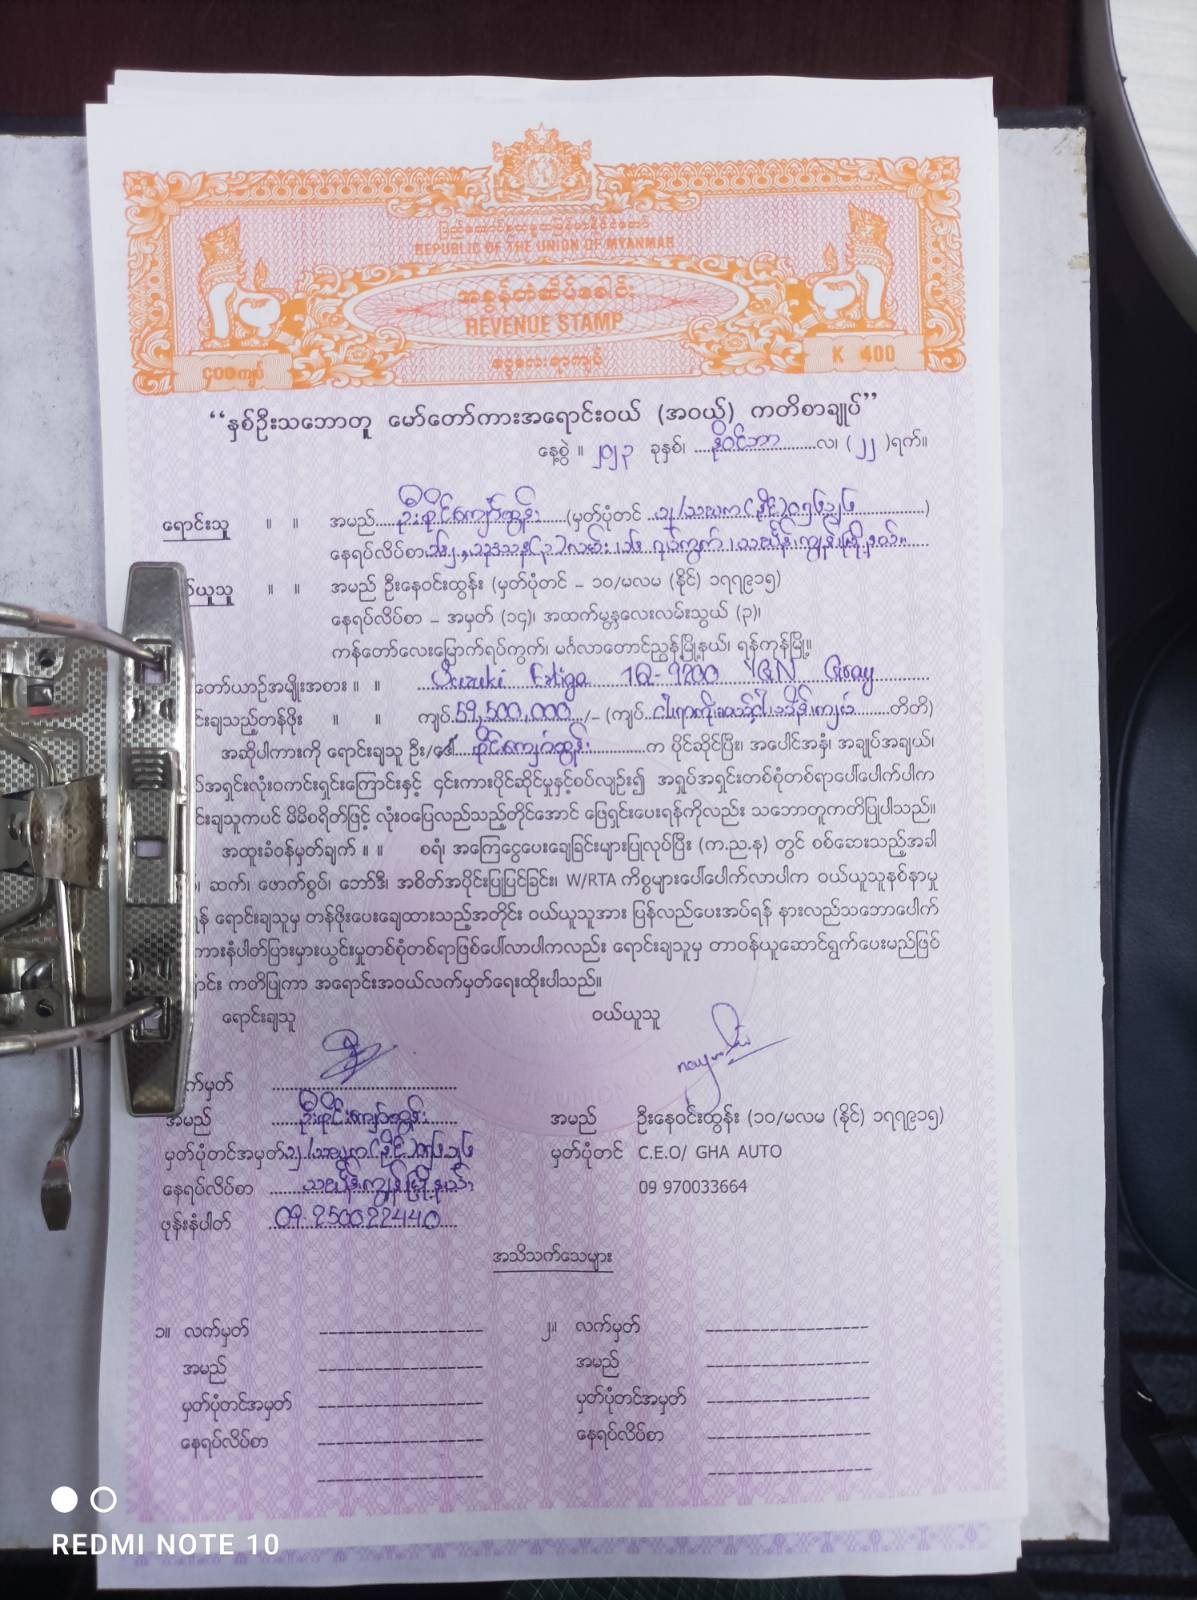 ပြည်ထောင်စုသမ္မတမြန်မာနိုင်ငံတော်
REPUBLIC OF THE UNION OF MYANMAR
အခွန်တံဆိပ်ခေါင်း
REVENUE STAMP
၄၀၀ကျပ် ငွေလေးရာကျပ် K 400
“နှစ်ဦးသဘောတူ မော်တော်ကားအရောင်းဝယ် (အဝယ်) ကတိစာချုပ်”
နေ့စွဲ ။ ၂၀၂၃ ခုနှစ်၊ နိုဝင်ဘာ လ၊ ( ၂၂ )ရက်။
ရောင်းသူ ။ ။ အမည် ဦးစိုင်းကျော်ထွန်း (မှတ်ပုံတင် )
နေရပ်လိပ်စာ လမ်း၊ ရပ်ကွက်၊ သင်္ဃန်းကျွန်းမြို့နယ်။
ယူသူ ။ ။ အမည် ဦးနေဝင်းထွန်း (မှတ်ပုံတင် – ၁၀/မလမ (နိုင်) ၁၇၇၉၁၅)
နေရပ်လိပ်စာ – အမှတ် (၁၄)၊ အထက်မွန္တလေးလမ်းသွယ် (၃)၊
ကန်တော်လေးမြောက်ရပ်ကွက်၊ မင်္ဂလာတောင်ညွန့်မြို့နယ်၊ ရန်ကုန်မြို့။
တော်ယာဉ်အမျိုးအစား ။ ။ Suzuki Ertiga 1Q-9700 YGN Gray
င်းချသည့်တန်ဖိုး ။ ။ ကျပ် 59,500,000 /– (ကျပ် တိတိ)
အဆိုပါကားကို ရောင်းချသူ ဦး/ဒေါ် စိုင်းကျော်ထွန်း က ပိုင်ဆိုင်ပြီး၊ အပေါင်အနှံ၊ အချုပ်အချယ်၊
အရှင်းလုံးဝကင်းရှင်းကြောင်းနှင့် ၄င်းကားပိုင်ဆိုင်မှုနှင့်စပ်လျဉ်း၍ အရှုပ်အရှင်းတစ်စုံတစ်ရာပေါ်ပေါက်ပါက
င်းချသူကပင် မိမိစရိတ်ဖြင့် လုံးဝပြေလည်သည့်တိုင်အောင် ဖြေရှင်းပေးရန်ကိုလည်း သဘောတူကတိပြုပါသည်။
အထူးခံဝန်မှတ်ချက် ။ ။ စရံ၊ အကြေငွေပေးချေခြင်းများပြုလုပ်ပြီး (က.ည.န) တွင် စစ်ဆေးသည့်အခါ
၊ ဆက်၊ ဖောက်စွပ်၊ ဘော်ဒီ၊ အစိတ်အပိုင်းပြုပြင်ခြင်း၊ W/RTA ကိစ္စများပေါ်ပေါက်လာပါက ဝယ်ယူသူနစ်နာမှု
ရန် ရောင်းချသူမှ တန်ဖိုးပေးချေထားသည့်အတိုင်း ဝယ်ယူသူအား ပြန်လည်ပေးအပ်ရန် နားလည်သဘောပေါက်
ကားနံပါတ်ပြားမှားယွင်းမှုတစ်စုံတစ်ရာဖြစ်ပေါ်လာပါကလည်း ရောင်းချသူမှ တာဝန်ယူဆောင်ရွက်ပေးမည်ဖြစ်
ကတိပြုကာ အရောင်းအဝယ်လက်မှတ်ရေးထိုးပါသည်။
ရောင်းချသူ ဝယ်ယူသူ
က်မှတ်
အမည် ဦးစိုင်းကျော်ထွန်း အမည် ဦးနေဝင်းထွန်း (၁၀/မလမ (နိုင်) ၁၇၇၉၁၅)
မှတ်ပုံတင်အမှတ် မှတ်ပုံတင် C.E.O/ GHA AUTO
နေရပ်လိပ်စာ သင်္ဃန်းကျွန်းမြို့နယ်။ 09 970033664
ဖုန်းနံပါတ် 09-250022440
အသိသက်သေများ
၁။ လက်မှတ် ၂။ လက်မှတ်
အမည် အမည်
မှတ်ပုံတင်အမှတ် မှတ်ပုံတင်အမှတ်
နေရပ်လိပ်စာ နေရပ်လိပ်စာ
REDMI NOTE 10